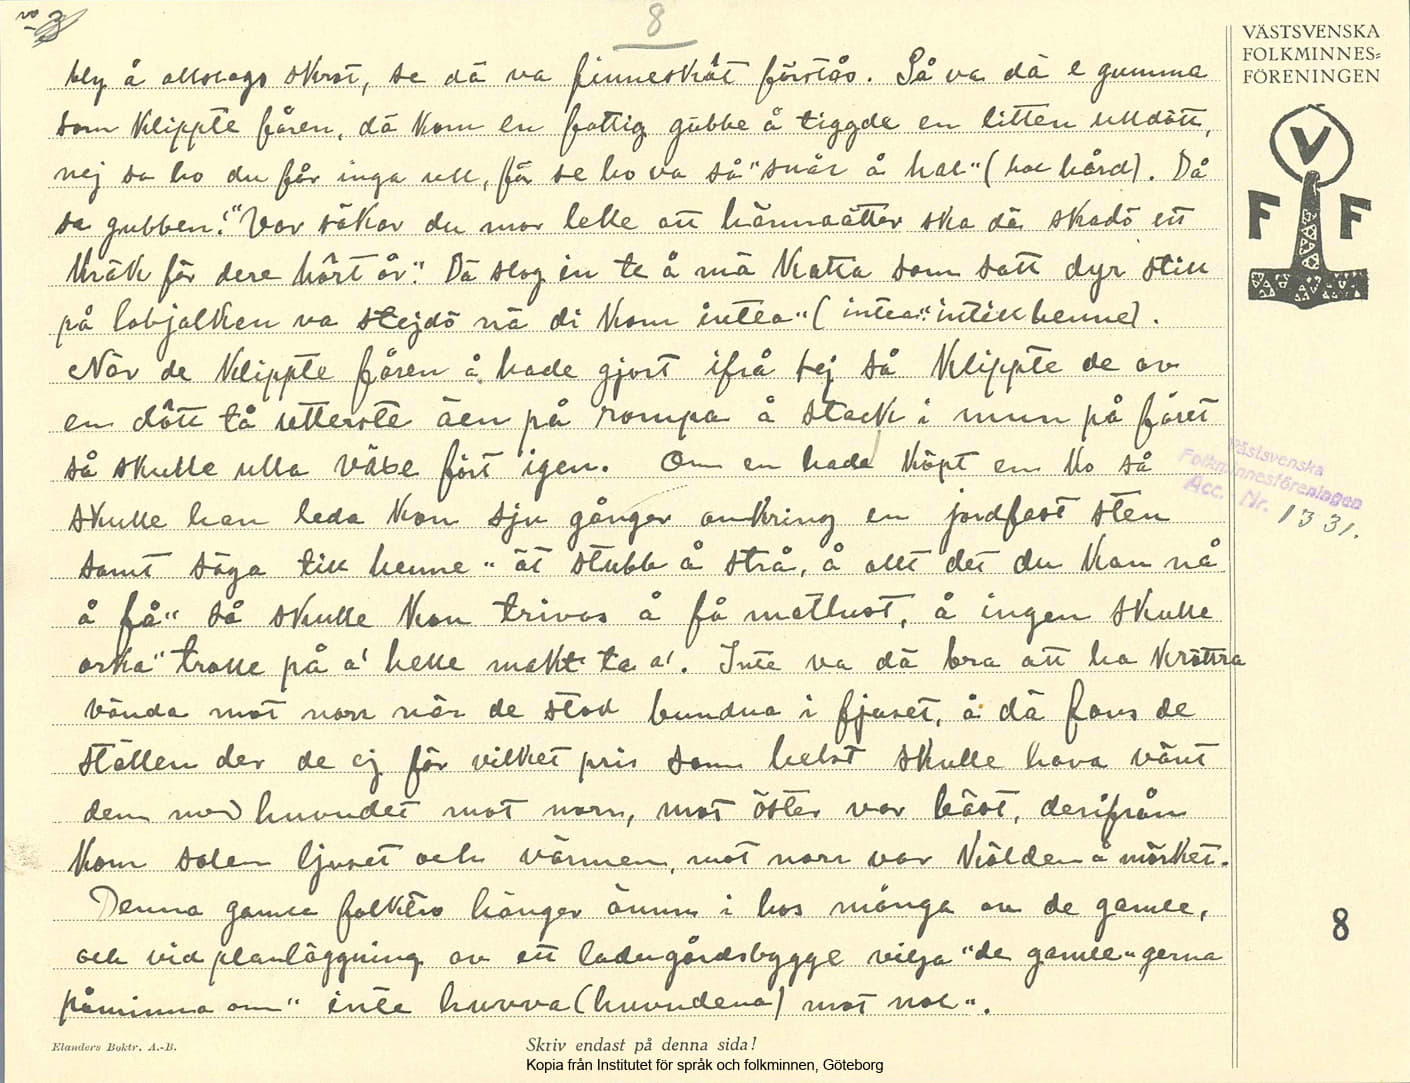 8
VÄSTSVENSKA
FOLKMINNES=
FÖRENINGEN
V
F F
bly å allslags skrot, se dä va finneskôt förstås. Så va dä e gumma
som klippte fåren, dä kom en fattig gubbe å tiggde en litten ulldôtt,
nej sa ho du får inga ull, för se ho va så "snål å hal" (hal hård). Då
sa gubben: "Var säker du mor lelle att härnaätter ska dä skadö ett
kräk för dere hårt år". Dä slog in te å mä katta som satt dyr still
på lobjalken va stejdö nä di kom intea" ( intea = intill henne).
När de klippte fåren å hade gjort ifrå sej så klippte de av
en dôtt tå ytterste äen på rompa å stack i mun på fåret
så skulle ulla växe fört igen. Om en hade köpt en ko så
skulle han leda kon sju gånger omkring en jordfast sten
samt säga till henne "ät stubb å strå, å allt det du kan nå
å få" så skulle kon trivas å få matlust, å ingen skulle
orka "trolle på a' helle makt ta a'. Inte va dä bra att ha krättra
vända mot norr när de stod bundna i fjuset, å dä fans de
ställen der de ej för vilket pris som helst skulle hava vänt
dem med huvudet mot norr, mot öster var bäst, derifrån
kom solen ljuset och värmen, mot norr var kölden å mörket.
Denna gamla folktro hänger ännu i hos många av de gamle,
och vid planläggning av ett ladugårdsbygge vilja "de gamle" gerna
påminna om "inte huvva (huvudena) mot nol".
Västsvenska
Folkminnesföreningen
Acc. Nr. 1331.
8
Elanders Boktr. A.-B.
Skriv endast på denna sida!
Kopia från Institutet för språk och folkminnen, Göteborg